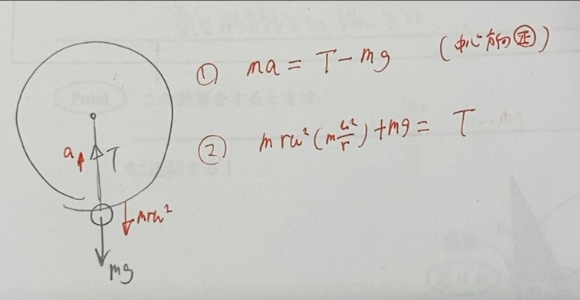 ① ma = T - mg (中心方向 正)
② mrω² (m\frac{v²}{r}) + mg = T
a
T
mrω²
mg
Point